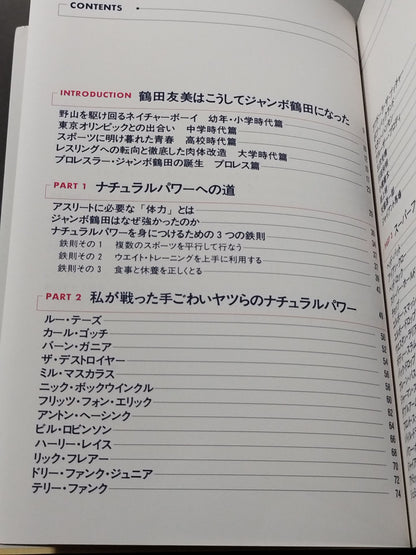 CONTENTS
INTRODUCTION 鶴田友美はこうしてジャンボ鶴田になった
野山を駆け回るネイチャーボーイ 幼年・小学時代篇
東京オリンピックとの出合い 中学時代篇
スポーツに明け暮れた青春 高校時代篇
レスリングへの転向と徹底した肉体改造 大学時代篇
プロレスラー・ジャンボ鶴田の誕生 プロレス篇
PART 1 ナチュラルパワーへの道
アスリートに必要な「体力」とは
ジャンボ鶴田はなぜ強かったのか
ナチュラルパワーを身につけるための3つの鉄則
鉄則その1 複数のスポーツを平行して行なう
鉄則その2 ウエイト・トレーニングを上手に利用する
鉄則その3 食事と休養を正しくとる
PART 2 私が戦った手ごわいヤツらのナチュラルパワー 49
ルー・テーズ 50
カール・ゴッチ 52
バーン・ガニア 54
ザ・デストロイヤー 56
ミル・マスカラス 58
ニック・ボックウインクル 60
フリッツ・フォン・エリック 62
アントン・ヘーシンク 64
ビル・ロビンソン 66
ハーリー・レイス 68
リック・フレアー 70
ドリー・ファンク・ジュニア 72
テリー・ファンク 74